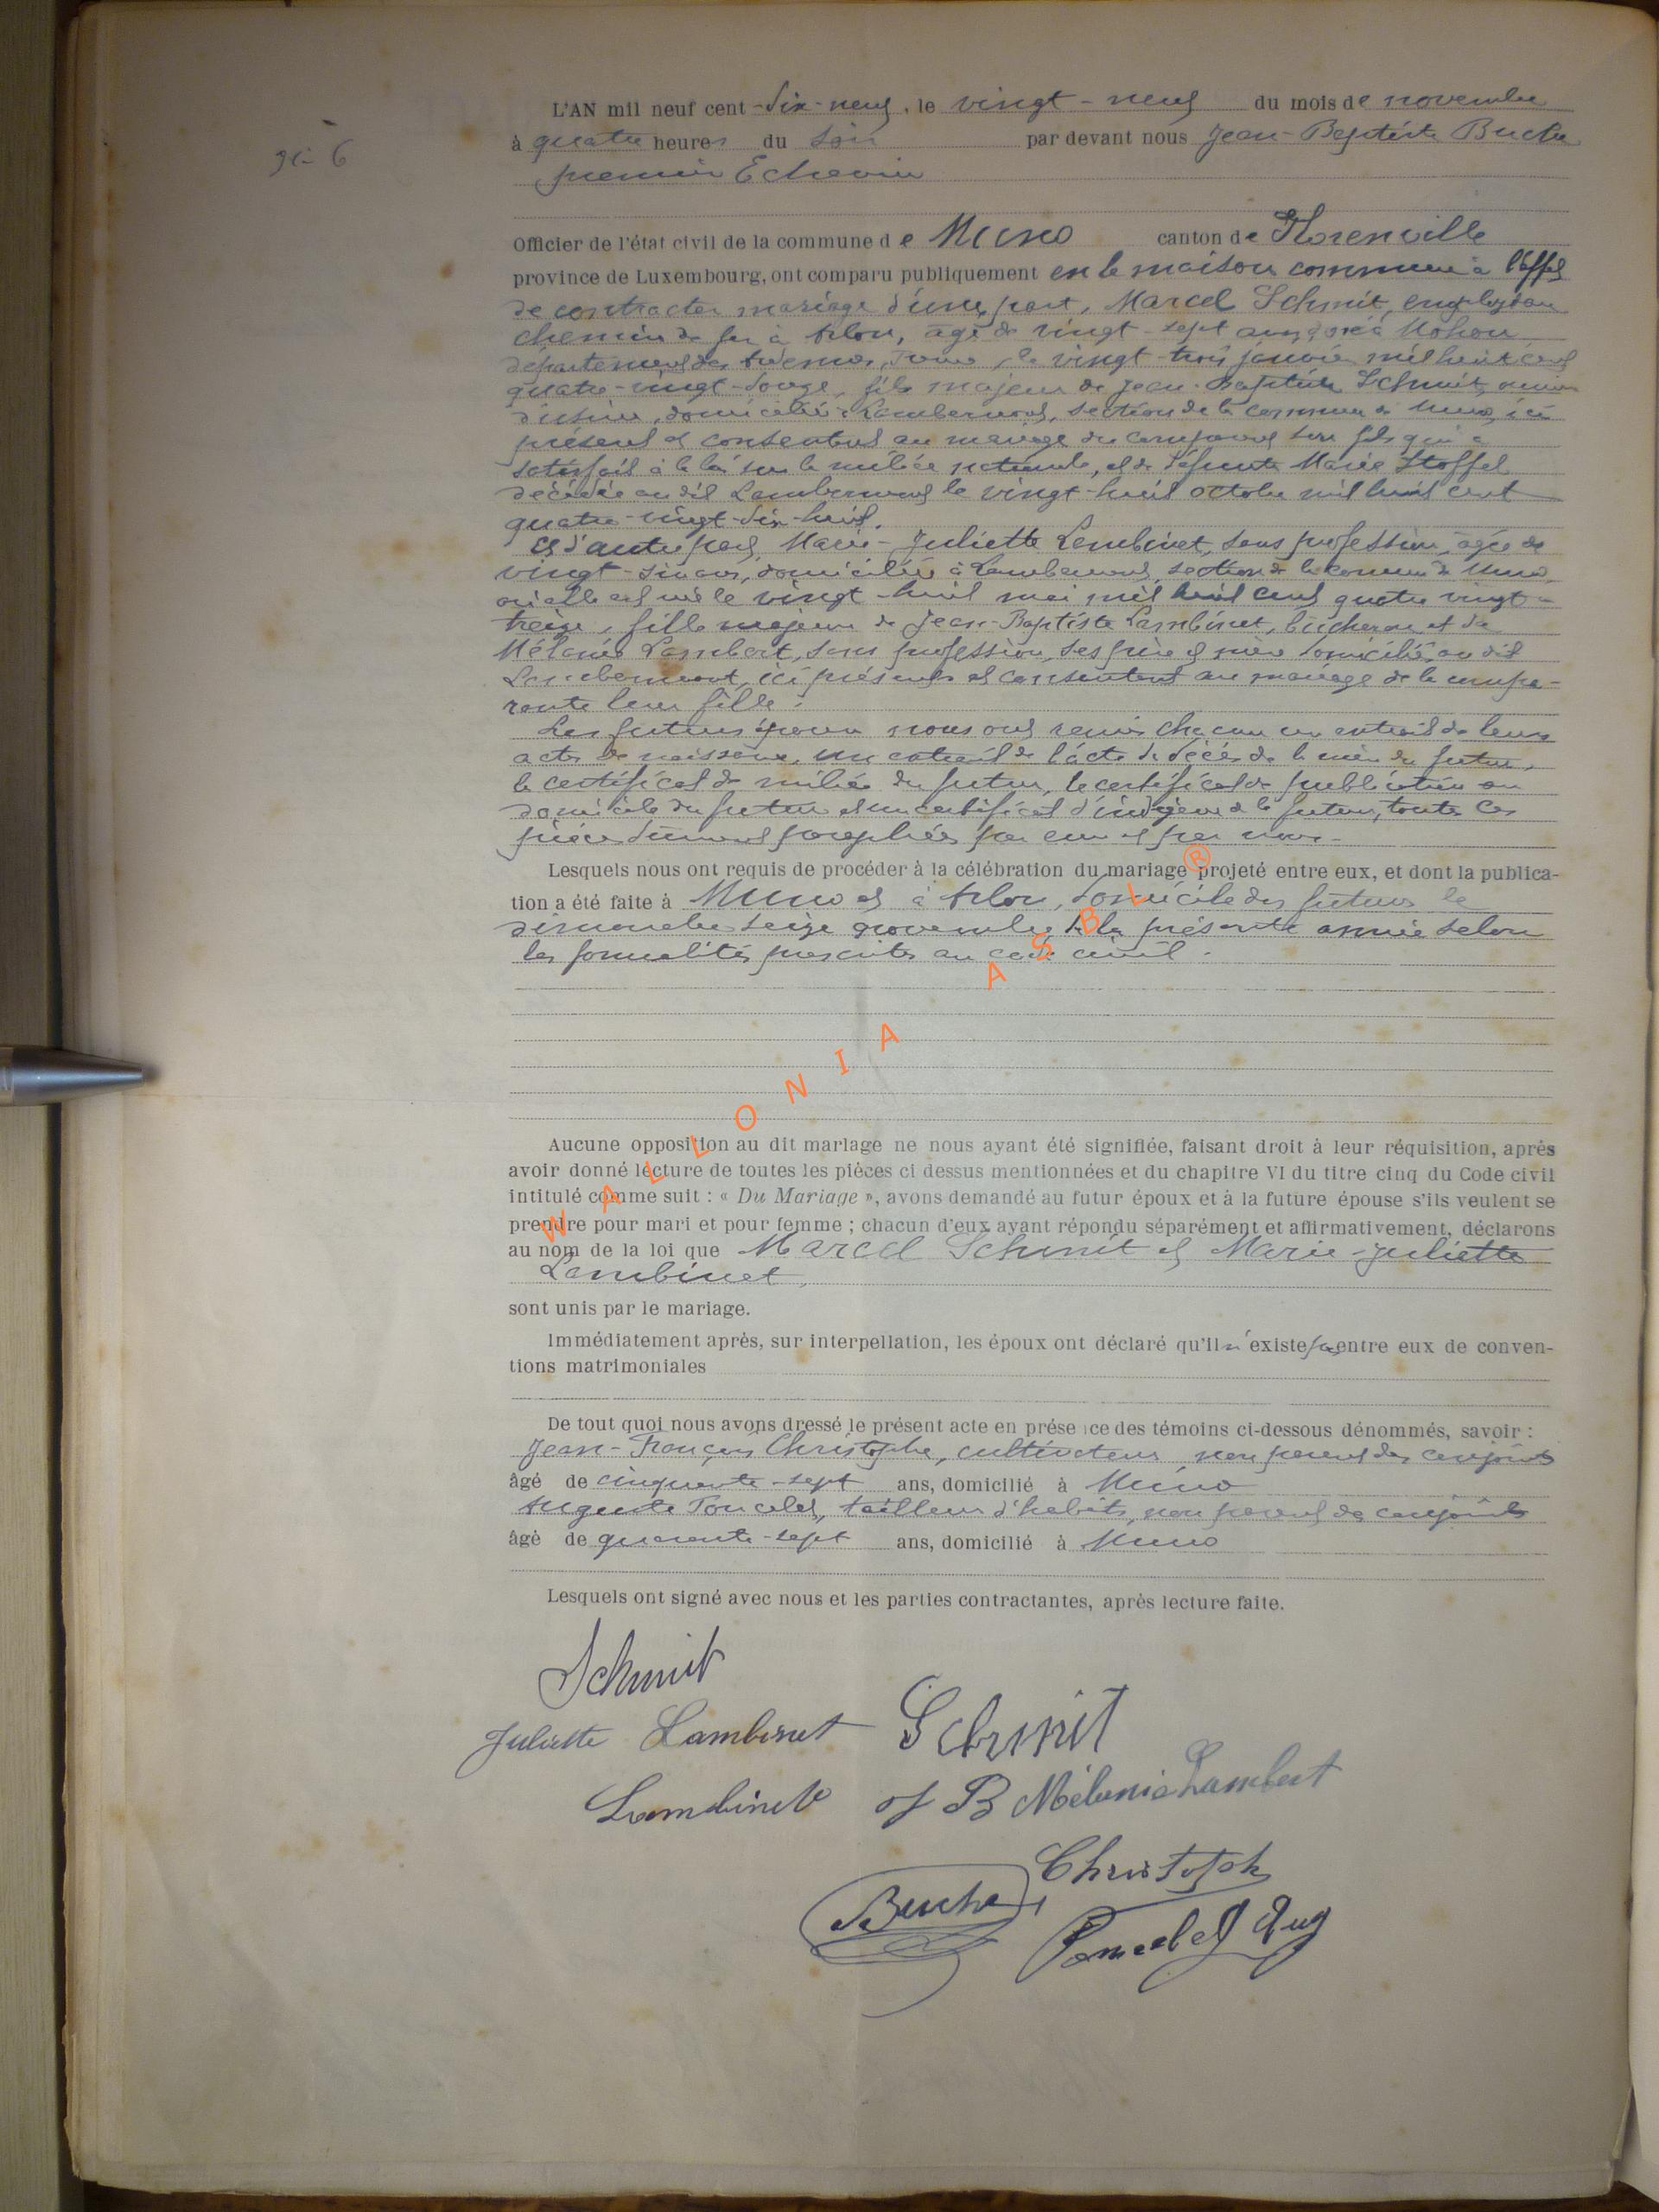 L'AN mil neuf cent dix-neuf, le vingt-neuf du mois de novembre
n° 6
à quatre heures du soir par devant nous Jean-Baptiste Buche
premier Echevin
Officier de l'état civil de la commune de Muno canton de Florenville
province de Luxembourg, ont comparu publiquement en la maison commune à l'effet
de contracter mariage d'une part, Marcel Schmit, employé au
chemin de fer à Arlon, âgé de vingt-sept ans, né à Mohon
département des Ardennes, le vingt-trois janvier mil huit cent
quatre-vingt-douze, fils majeur de Jean-Baptiste Schmit, ouvrier
d'usine, domicilié à Lambermont, section de la commune de Muno, ici
présent et consentant au mariage du comparant son fils qui a
satisfait à la loi sur la milice nationale, et de défunte Marie Stoffel
décédée au dit Lambermont le vingt-huit octobre mil huit cent
quatre-vingt-dix-huit.
Et d'autre part, Marie-Juliette Lambinet, sans profession, âgée de
vingt-six ans, domiciliée à Lambermont, section de la commune de Muno,
où elle est née le vingt-huit mai mil huit cent quatre vingt-
treize, fille majeure de Jean-Baptiste Lambinet, bûcheron et de
Mélanie Lambert, sans profession, ses père et mère domiciliés au dit
Lambermont, ici présents et consentant au mariage de la compa-
rante leur fille.
Les futurs époux nous ont remis chacun un extrait de leurs
actes de naissance, un extrait de l'acte de décès de la mère du futur,
le certificat de milice du futur, le certificat de publication au
domicile du futur et un certificat d'indigence de la future, toutes ces
pièces dûment paraphées par eux et par nous.
Lesquels nous ont requis de procéder à la célébration du mariage projeté entre eux, et dont la publica-
tion a été faite à Muno et à Arlon, domicile des futurs le
dimanche seize novembre de la présente année selon
les formalités prescrites au code civil.
WALLONIA ASBL ®
Aucune opposition au dit mariage ne nous ayant été signifiée, faisant droit à leur réquisition, après
avoir donné lecture de toutes les pièces ci dessus mentionnées et du chapitre VI du titre cinq du Code civil
intitulé comme suit : « Du Mariage », avons demandé au futur époux et à la future épouse s'ils veulent se
prendre pour mari et pour femme ; chacun d'eux ayant répondu séparément et affirmativement, déclarons
au nom de la loi que Marcel Schmit et Marie-Juliette
Lambinet,
sont unis par le mariage.
Immédiatement après, sur interpellation, les époux ont déclaré qu'il n'existe pas entre eux de conven-
tions matrimoniales
De tout quoi nous avons dressé le présent acte en présence des témoins ci-dessous dénommés, savoir :
Jean-François Christophe, cultivateur, non parent des conjoints
âgé de cinquante-sept ans, domicilié à Muno
Auguste Poncelet, tailleur d'habits, non parent des conjoints
âgé de quarante-sept ans, domicilié à Muno
Lesquels ont signé avec nous et les parties contractantes, après lecture faite.
Schmit
Juliette Lambinet Schmit
Lambinet J B Mélanie Lambert
Christophe
Buche
Poncelet Aug